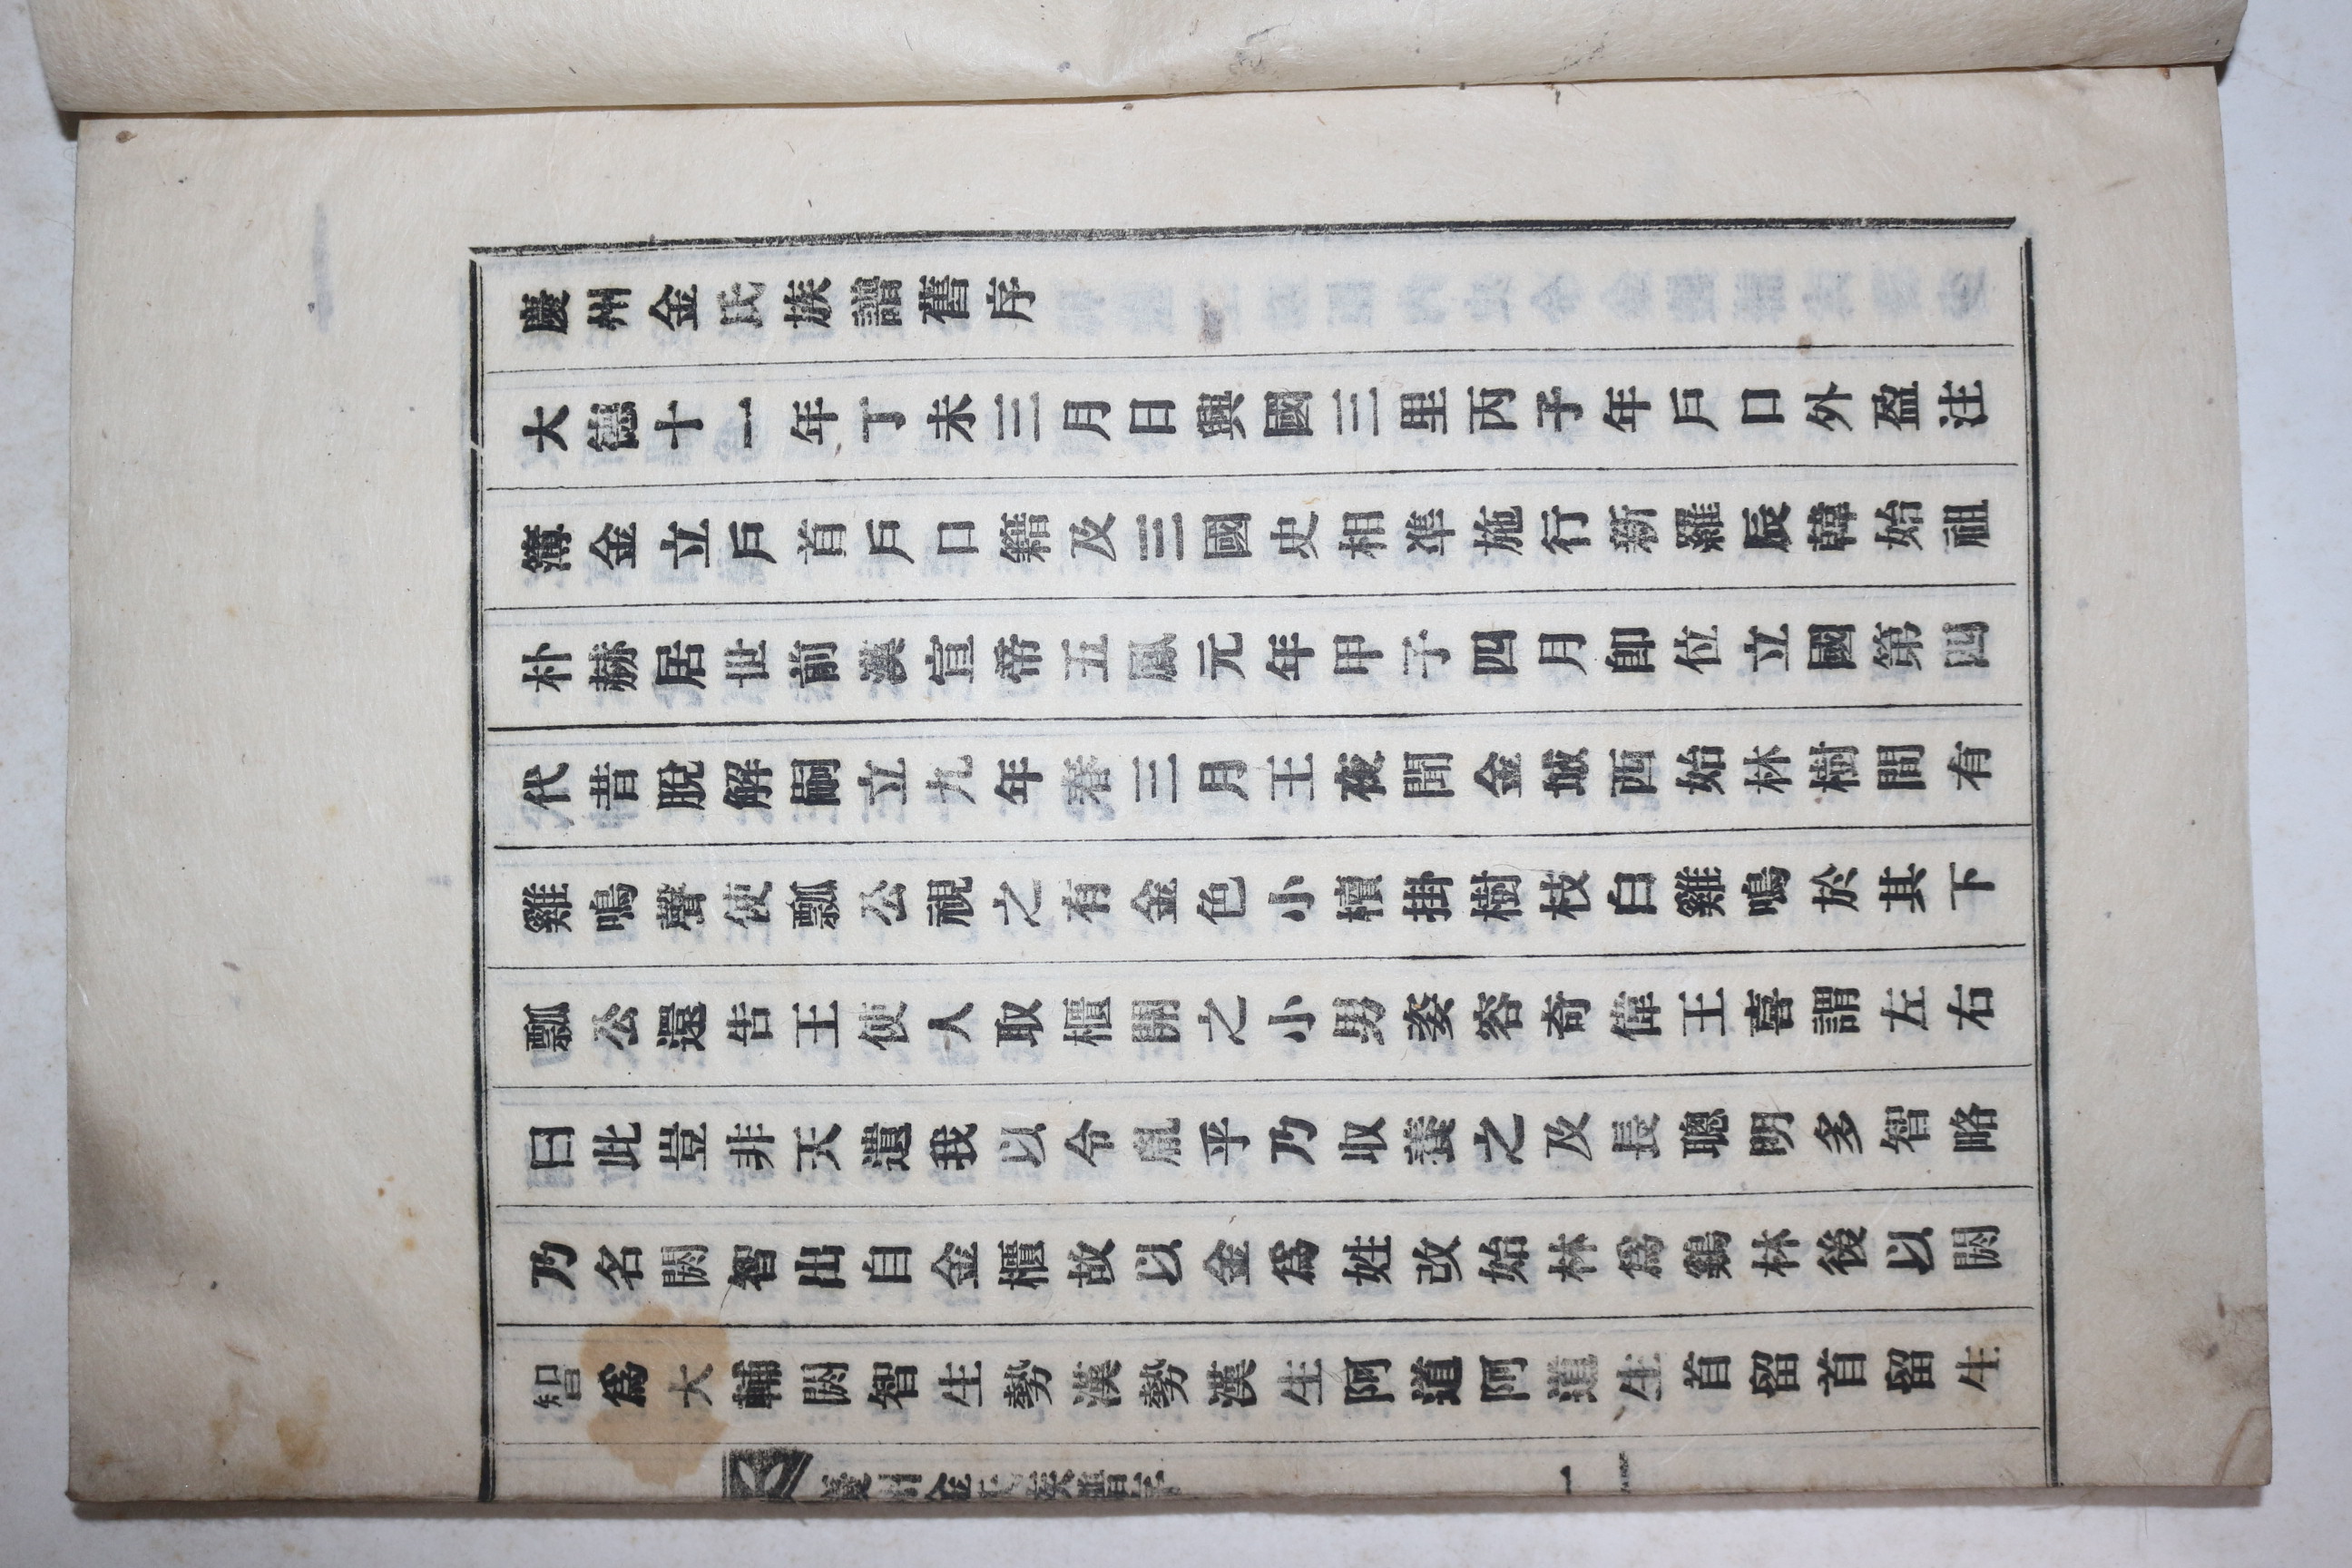 慶州金氏族譜舊序
大德十一年丁未三月日興國三里丙子年戶口外盈注
簿金立戶首戶口籍及三國史相準施行新羅辰韓始祖
朴赫居世前漢宣帝五鳳元年甲子四月卽位立國第四
代昔脫解嗣立九年春三月王夜聞金城西始林樹間有
雞鳴聲使瓢公視之有金色小櫝掛樹枝白雞鳴於其下
瓢公還告王使人取櫃開之小男姿容奇偉王喜謂左右
曰此豈非天遺我以令胤乎乃收養之及長聰明多智略
乃名閼智出自金櫃故以金爲姓改始林爲鷄林後以閼
智爲大輔閼智生勢漢勢漢生阿道阿道生首留首留生
慶州金氏族譜序 一